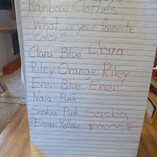 Rainbow Clothes.
What is your favorite
color?
Clara Blue Clara
Riley Orange Riley
Eren Blue Eren
Naia Pink
Saskia Pink Saskia
Emma Yellow